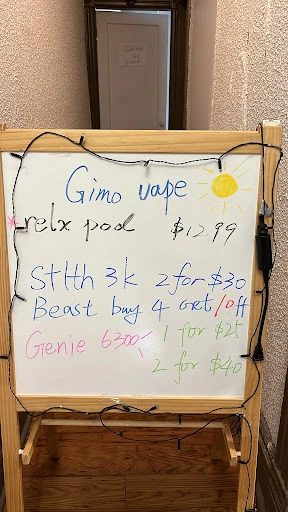 Gimo vape
relx pod $12.99
Stlth 3k 2 for $30
Beast buy 4 Get 10ff
Genie 6300
1 for $25
2 for $40